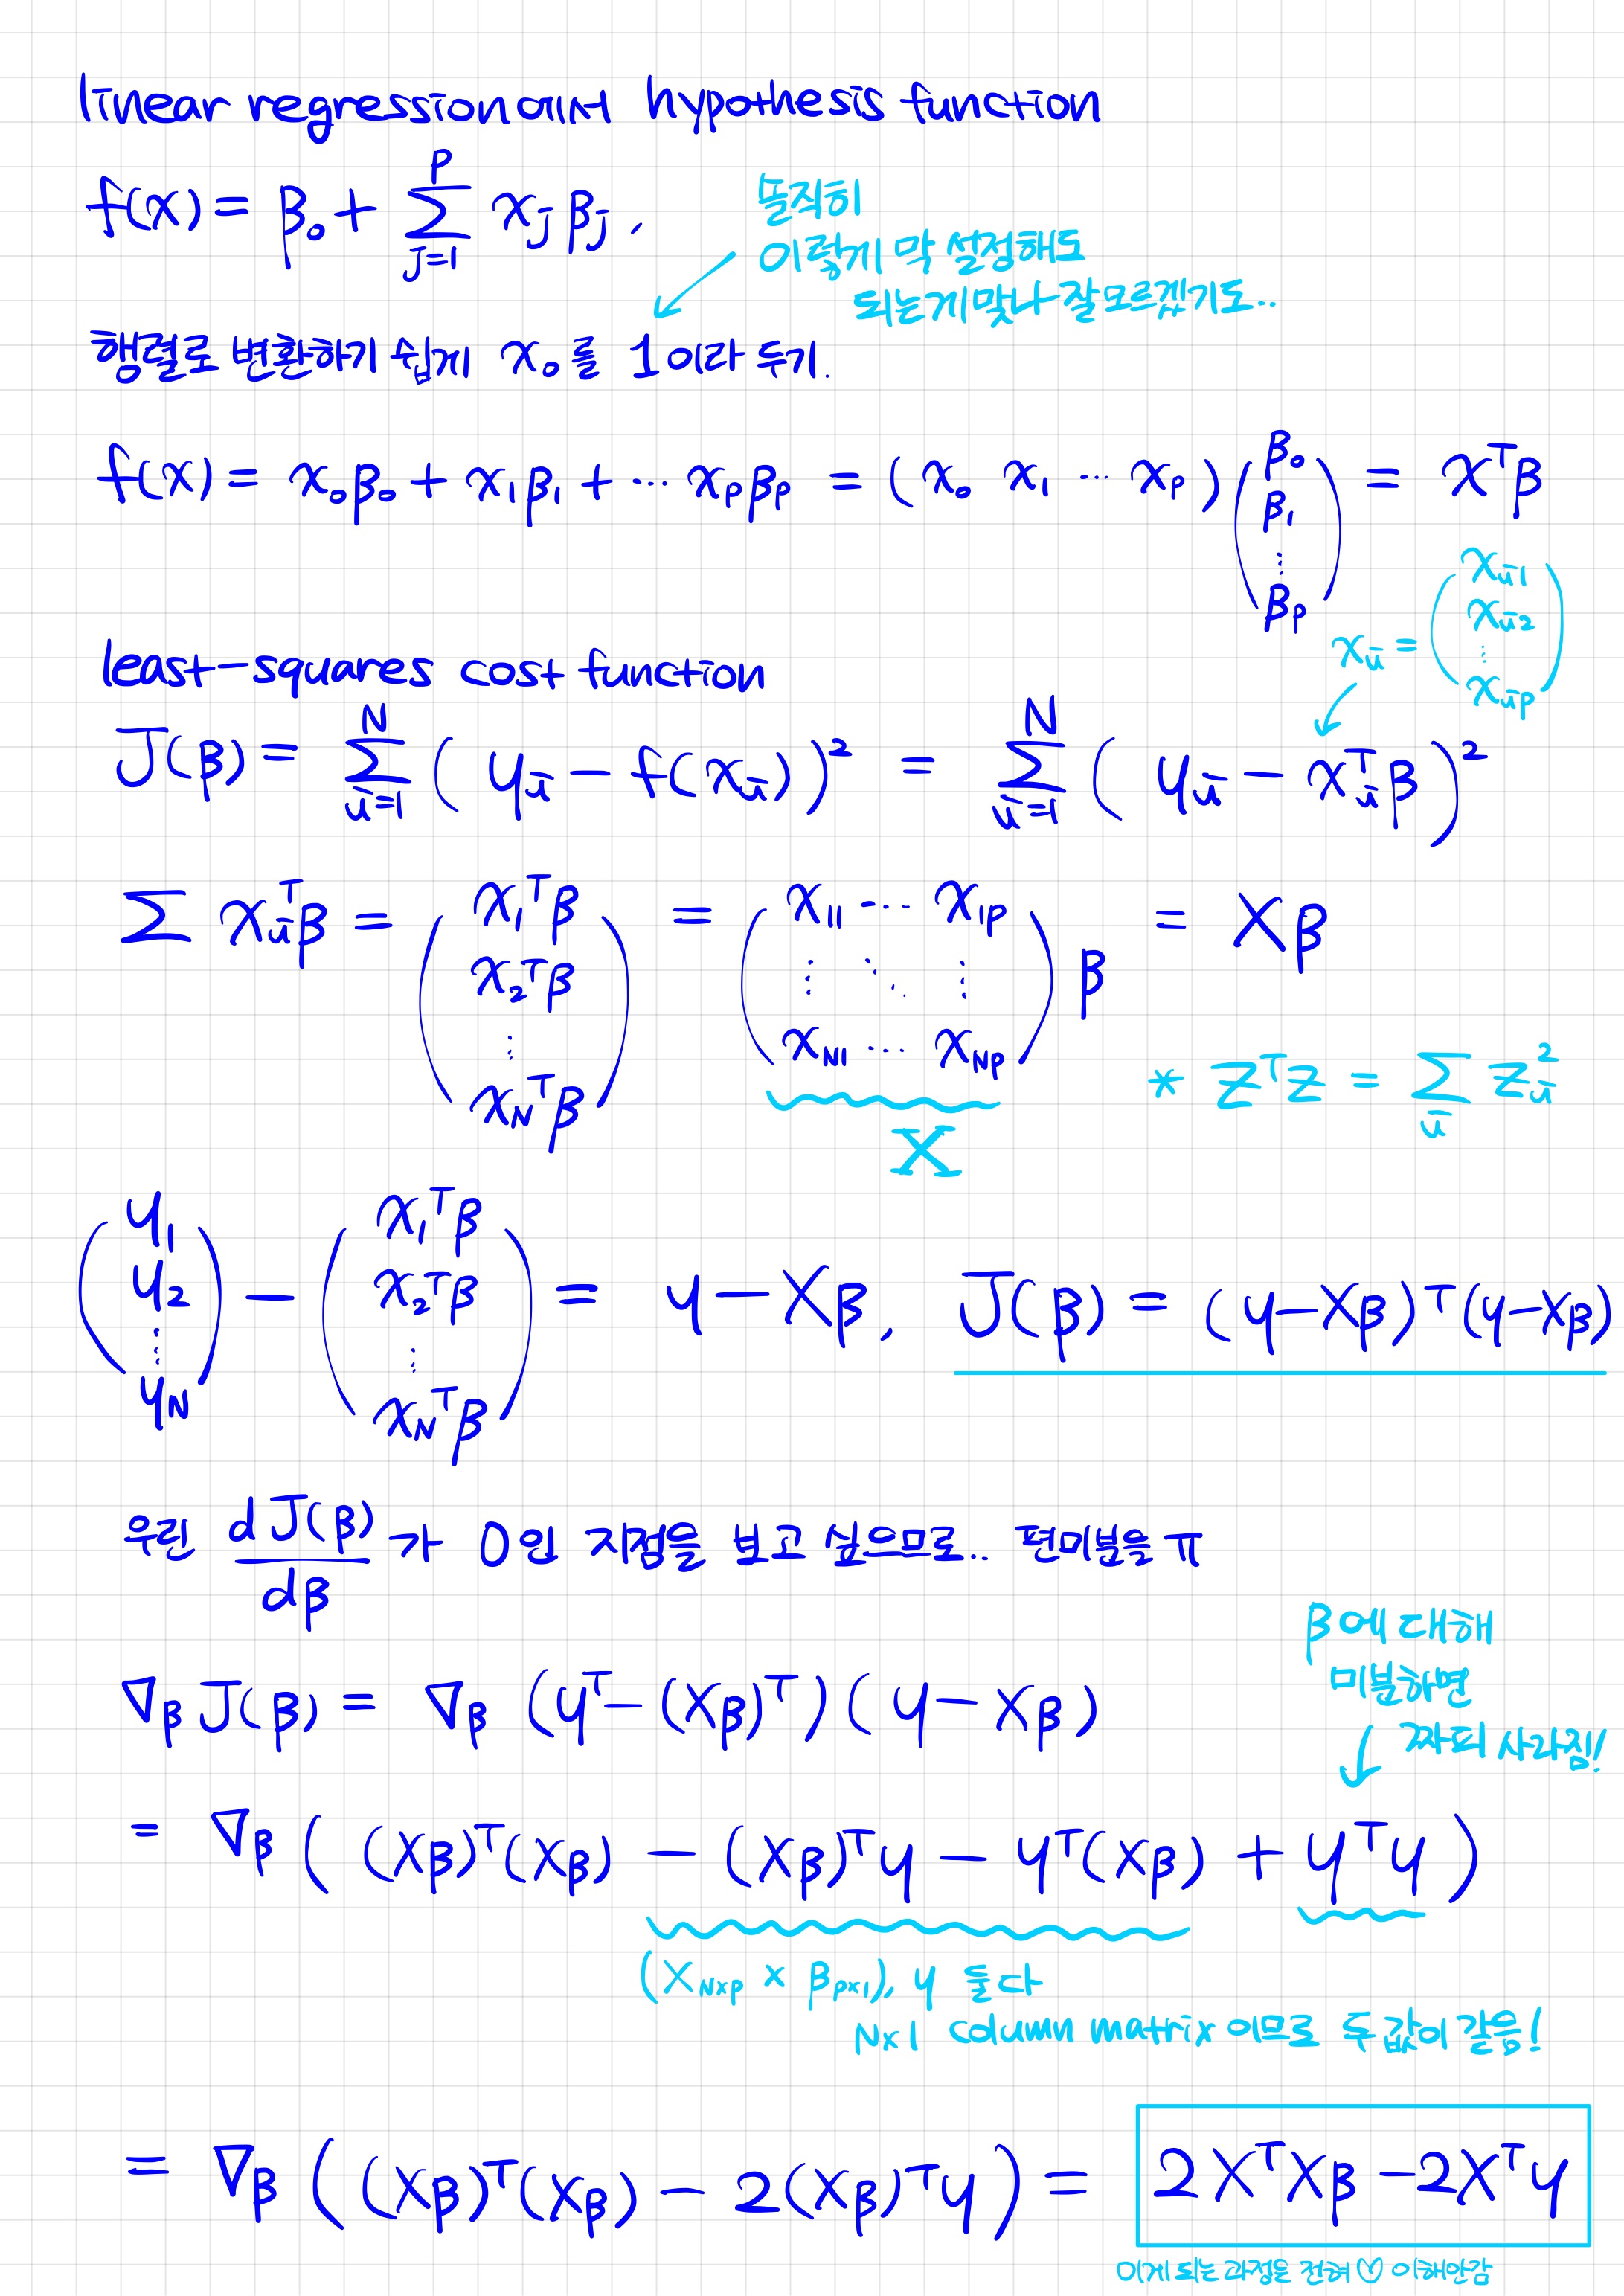 linear regression에서 hypothesis function
f(x) = β₀ + Σ_{j=1}^{p} x_j β_j.
솔직히
이렇게 막 설정해도
되는게맞나 잘모르겠기도..
행렬로 변환하기 쉽게 x₀를 1이라 두기.
f(x) = x₀β₀ + x₁β₁ + ⋯ x_pβ_p = (x₀ x₁ ⋯ x_p) (β₀ β₁ ⋮ β_p) = x^T β
x_i = (x_{i1} x_{i2} ⋮ x_{ip})
least-squares cost function
J(β) = Σ_{i=1}^{N} (y_i − f(x_i))² = Σ_{i=1}^{N} (y_i − x_i^T β)²
Σ x_i^T β = (x₁^T β x₂^T β ⋮ x_N^T β) = (x₁₁ ⋯ x_{1p} ⋮ ⋱ ⋮ x_{N1} ⋯ x_{Np}) β = Xβ
X
* z^T z = Σ_i z_i²
(y₁ y₂ ⋮ y_N) − (x₁^T β x₂^T β ⋮ x_N^T β) = y − Xβ, J(β) = (y−Xβ)^T (y−Xβ)
우린 dJ(β)/dβ 가 0인 지점을 보고 싶으므로.. 편미분을 ㅠ
β에 대해
미분하면
짜피 사라짐!
∇_β J(β) = ∇_β (y^T − (Xβ)^T)(y − Xβ)
= ∇_β ((Xβ)^T(Xβ) − (Xβ)^T y − y^T(Xβ) + y^T y)
(X_{N×p} × β_{p×1}), y 둘다
N×1 column matrix 이므로 두 값이 같음!
= ∇_β ((Xβ)^T(Xβ) − 2(Xβ)^T y) = 2X^T Xβ − 2X^T y
이게 되는 과정을 전혀 ♡ 이해안감